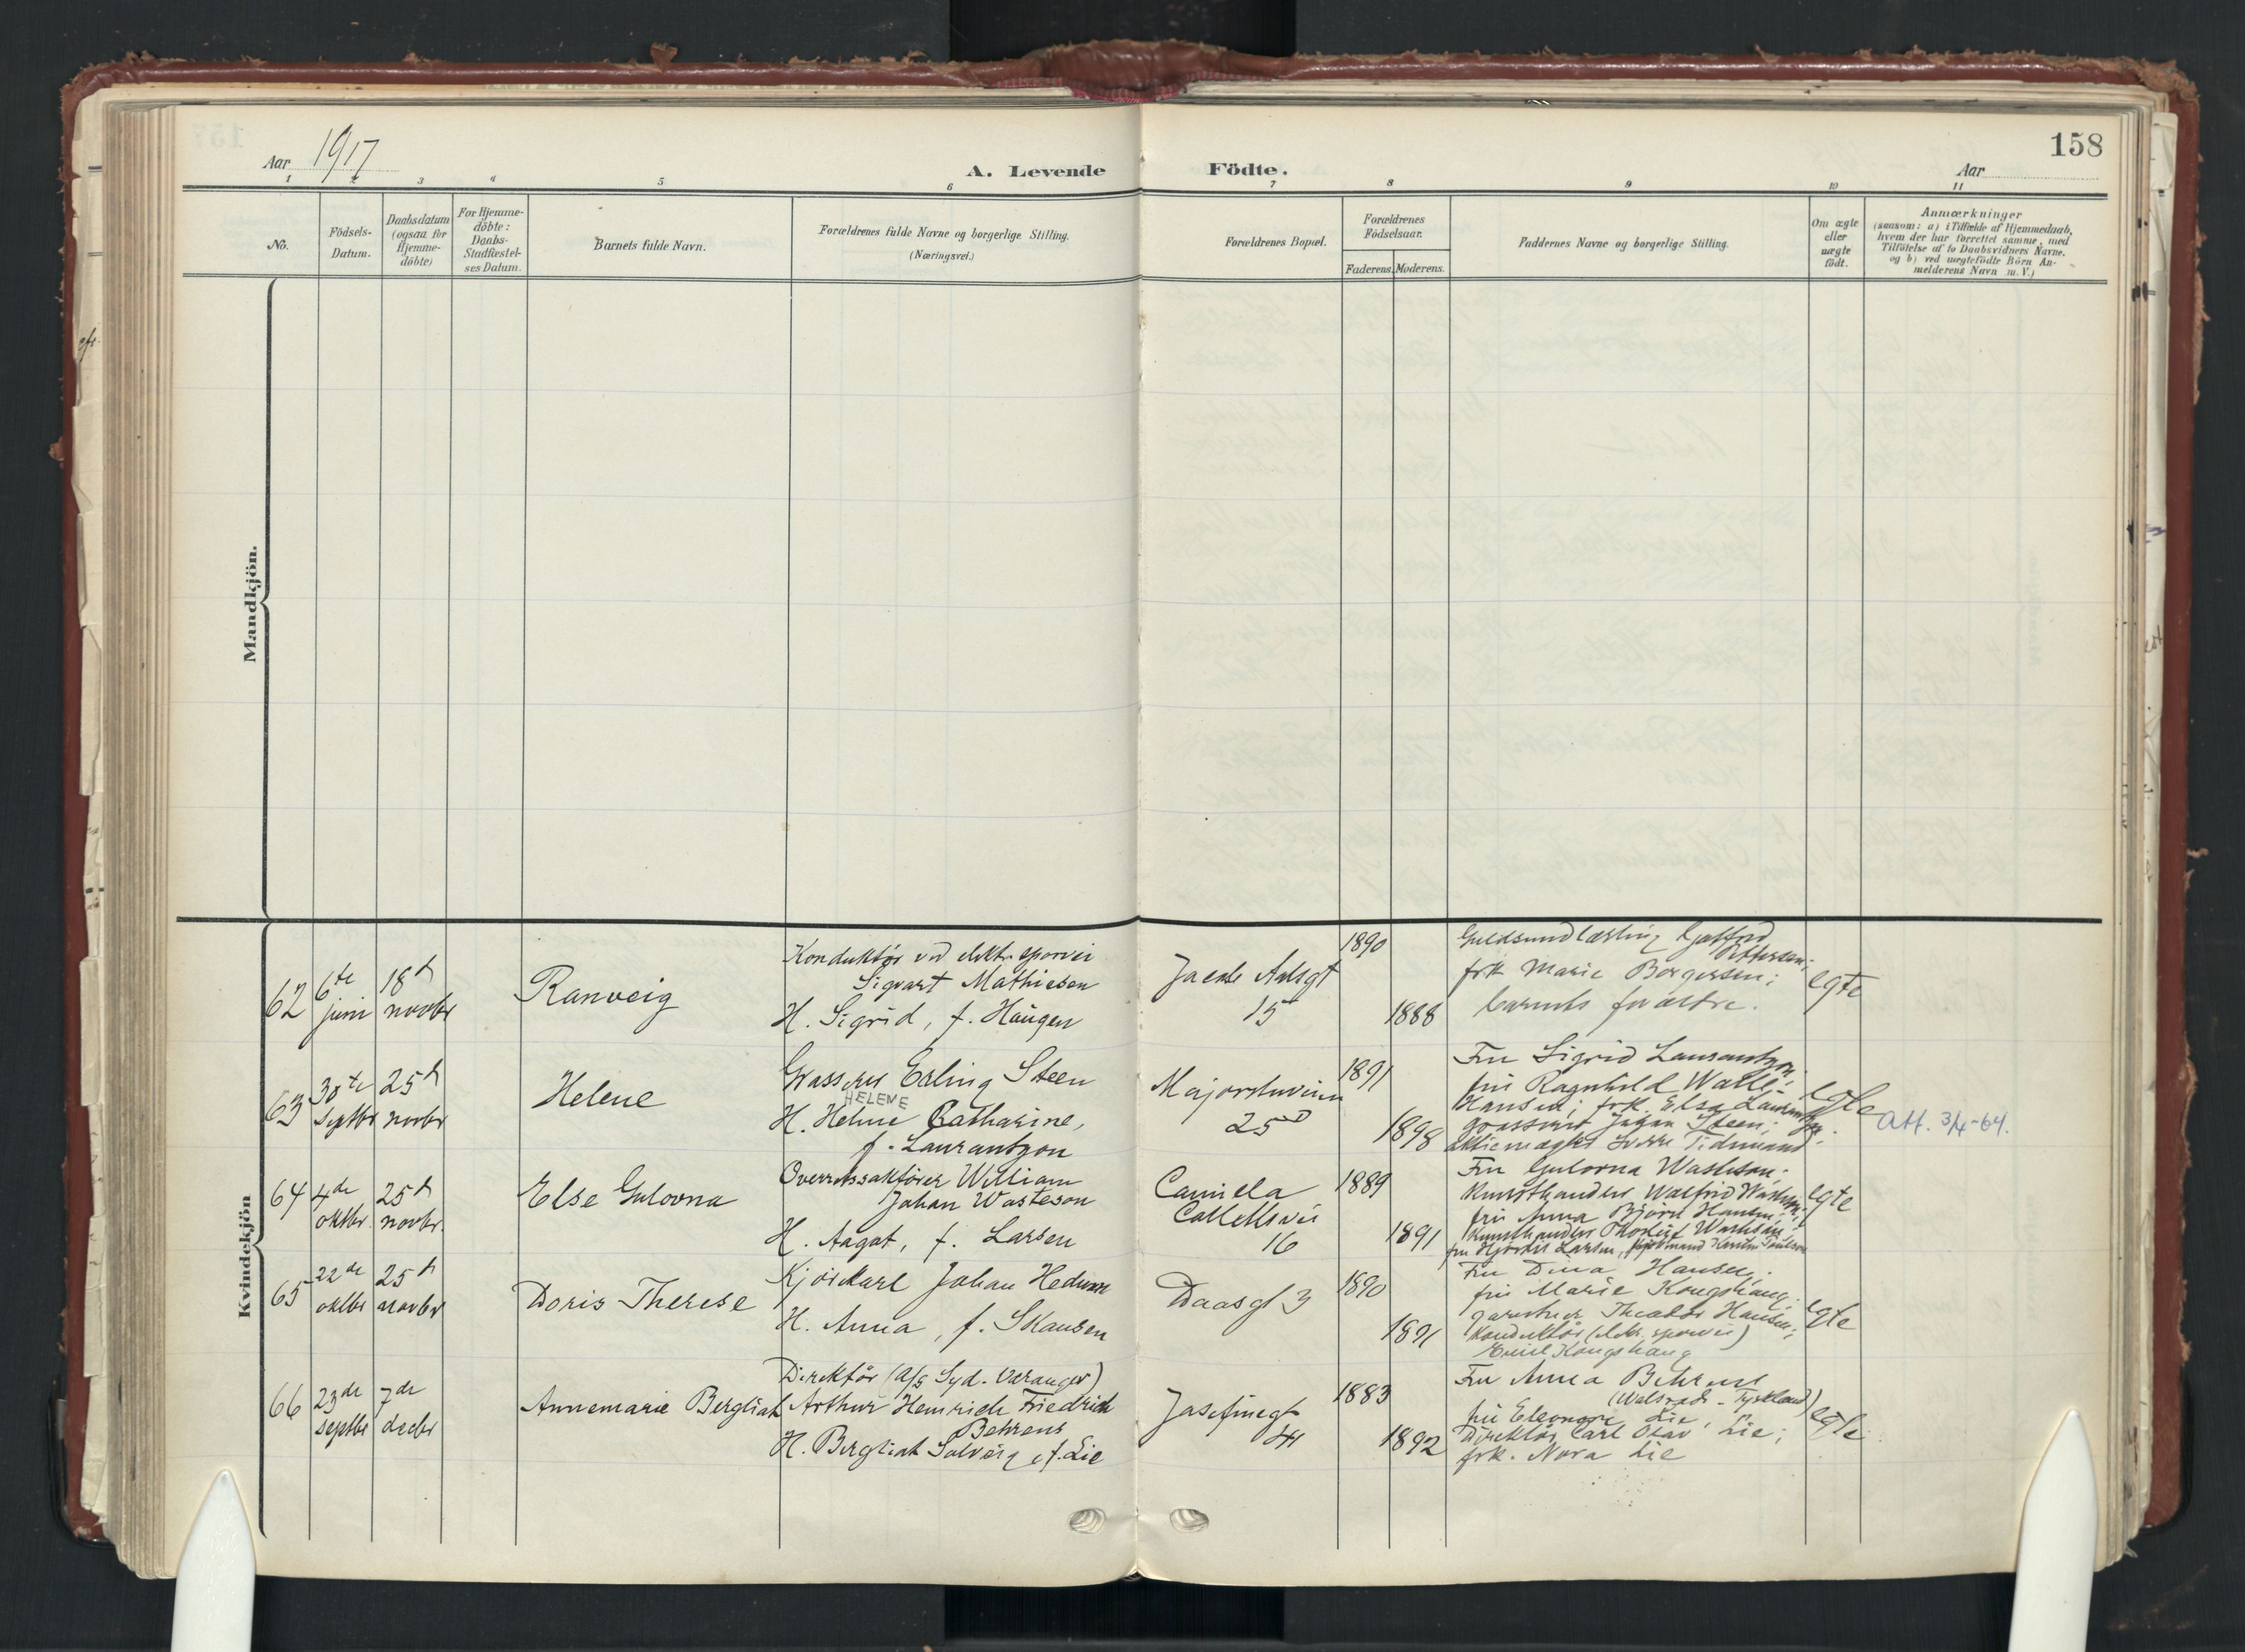 Aar 1917
A. Levende
Födte.
158
Aar
1 2 3 4 5 6 7 8 9 10 11
No.
Födsels-
Datum.
Daabsdatum
(ogsaa for
Hjemme-
döbte)
For Hjemme-
döbte:
Daabs-
Stadfestel-
ses Datum.
Barnets fulde Navn.
Forældrenes fulde Navne og borgerlige Stilling.
(Næringsvei.)
Forældrenes Bopæl.
Forældrenes
Födselsaar.
Faderens. Moderens.
Faddernes Navne og borgerlige Stilling.
Om ægte
eller
uægte
födt.
Anmærkninger
(saasom: a) i Tilfælde af Hjemmedaab,
hvem der har forrettet samme, med
Tilföielse af to Daabsvidners Navne,
og b) ved uægtefödte Börn An-
melderens Navn m. V.)
Mandkjön.
Kvindekjön
62
6te
juni
18d
novbr
Ranveig
Konduktör ved elektr. sporvei
Sigvart Mathiesen
H. Sigrid, f. Haugen
Jacob Aalsgt
15
1890
1888
Pettersen;
frk Marie Borgersen;
barnets forældre.
egte
63
30te
septbr
25d
novbr
Helene
Grosserer Erling Steen
HELENE
H. Helene Catharine,
f. Laurantzon
Majorstuveien
25D
1891
1898
Fru Sigrid Laurantzon;
fru Ragnhild Walle-
Hansen; frk. Else Laurantzon;
grosserer Johan Steen;
Tidemand.
egte
Att. 3/4-64.
64
4de
oktbr.
25d
novbr.
Else Gulovna
Overretssakförer William
Johan Wasteson
H. Aagot, f. Larsen
Camilla
Colletts vei
16
1889
1891
Fru Gulovna Wasteson;
Kunsthandler Walfrid Wasteson;
fru Anna Björn Hansen;
Kunsthandler Thorleif Wasteson;
fru Hjördis Larsen,
egte
65
22de
oktbr
25d
novbr
Doris Therese
Kjörekarl Johan Hedman
H. Anna, f. Skausen
Daasgt 3
1890
1891
Fru Dina Hansen;
fru Marie Kongshaug;
gartner Theodor Hansen;
Konduktör (elektr. sporvei)
Emil Kongshaug
egte
66
23de
septbr
7de
decbr
Annemarie Bergliot
Direktör (A/S Syd-Varanger)
Arthur Heinrich Friedrich
Behrens
H. Bergliot Solveig, f. Lie
Josefinegt
1883
1892
Fru Anna Behrens
(Walsrode - Tyskland)
fru Eleonore Lie;
Direktör Carl Olav Lie;
frk. Nora Lie
egte